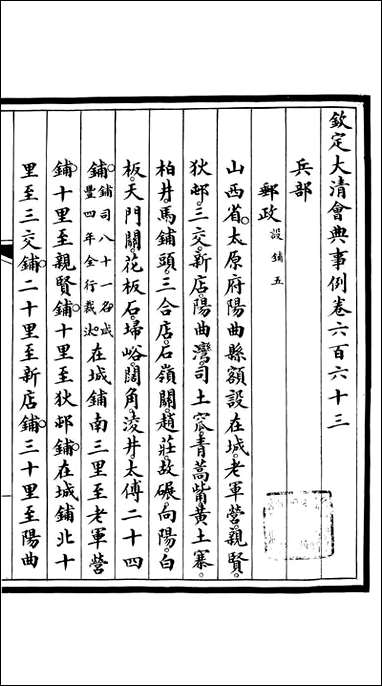 欽定大清會典事例卷六百六十三
兵部
郵政設鋪五
山西省。太原府陽曲縣額設在城。老軍營。親賢。
狄邨。三交。新店。陽曲灣。司土窊。青蒿嘴。黃土寨。
柏井。馬鋪頭。三合店。石嶺關。趙莊。故碾。向陽。白
板。天門關。花板石。埽峪。闊角。淩井。太傅二十四
鋪。鋪司八十一名。咸豐四年全行裁汰。在城鋪南三里至老軍營
鋪。十里至親賢鋪。十里至狄邨鋪。在城鋪北十
里至三交鋪。二十里至新店鋪。三十里至陽曲